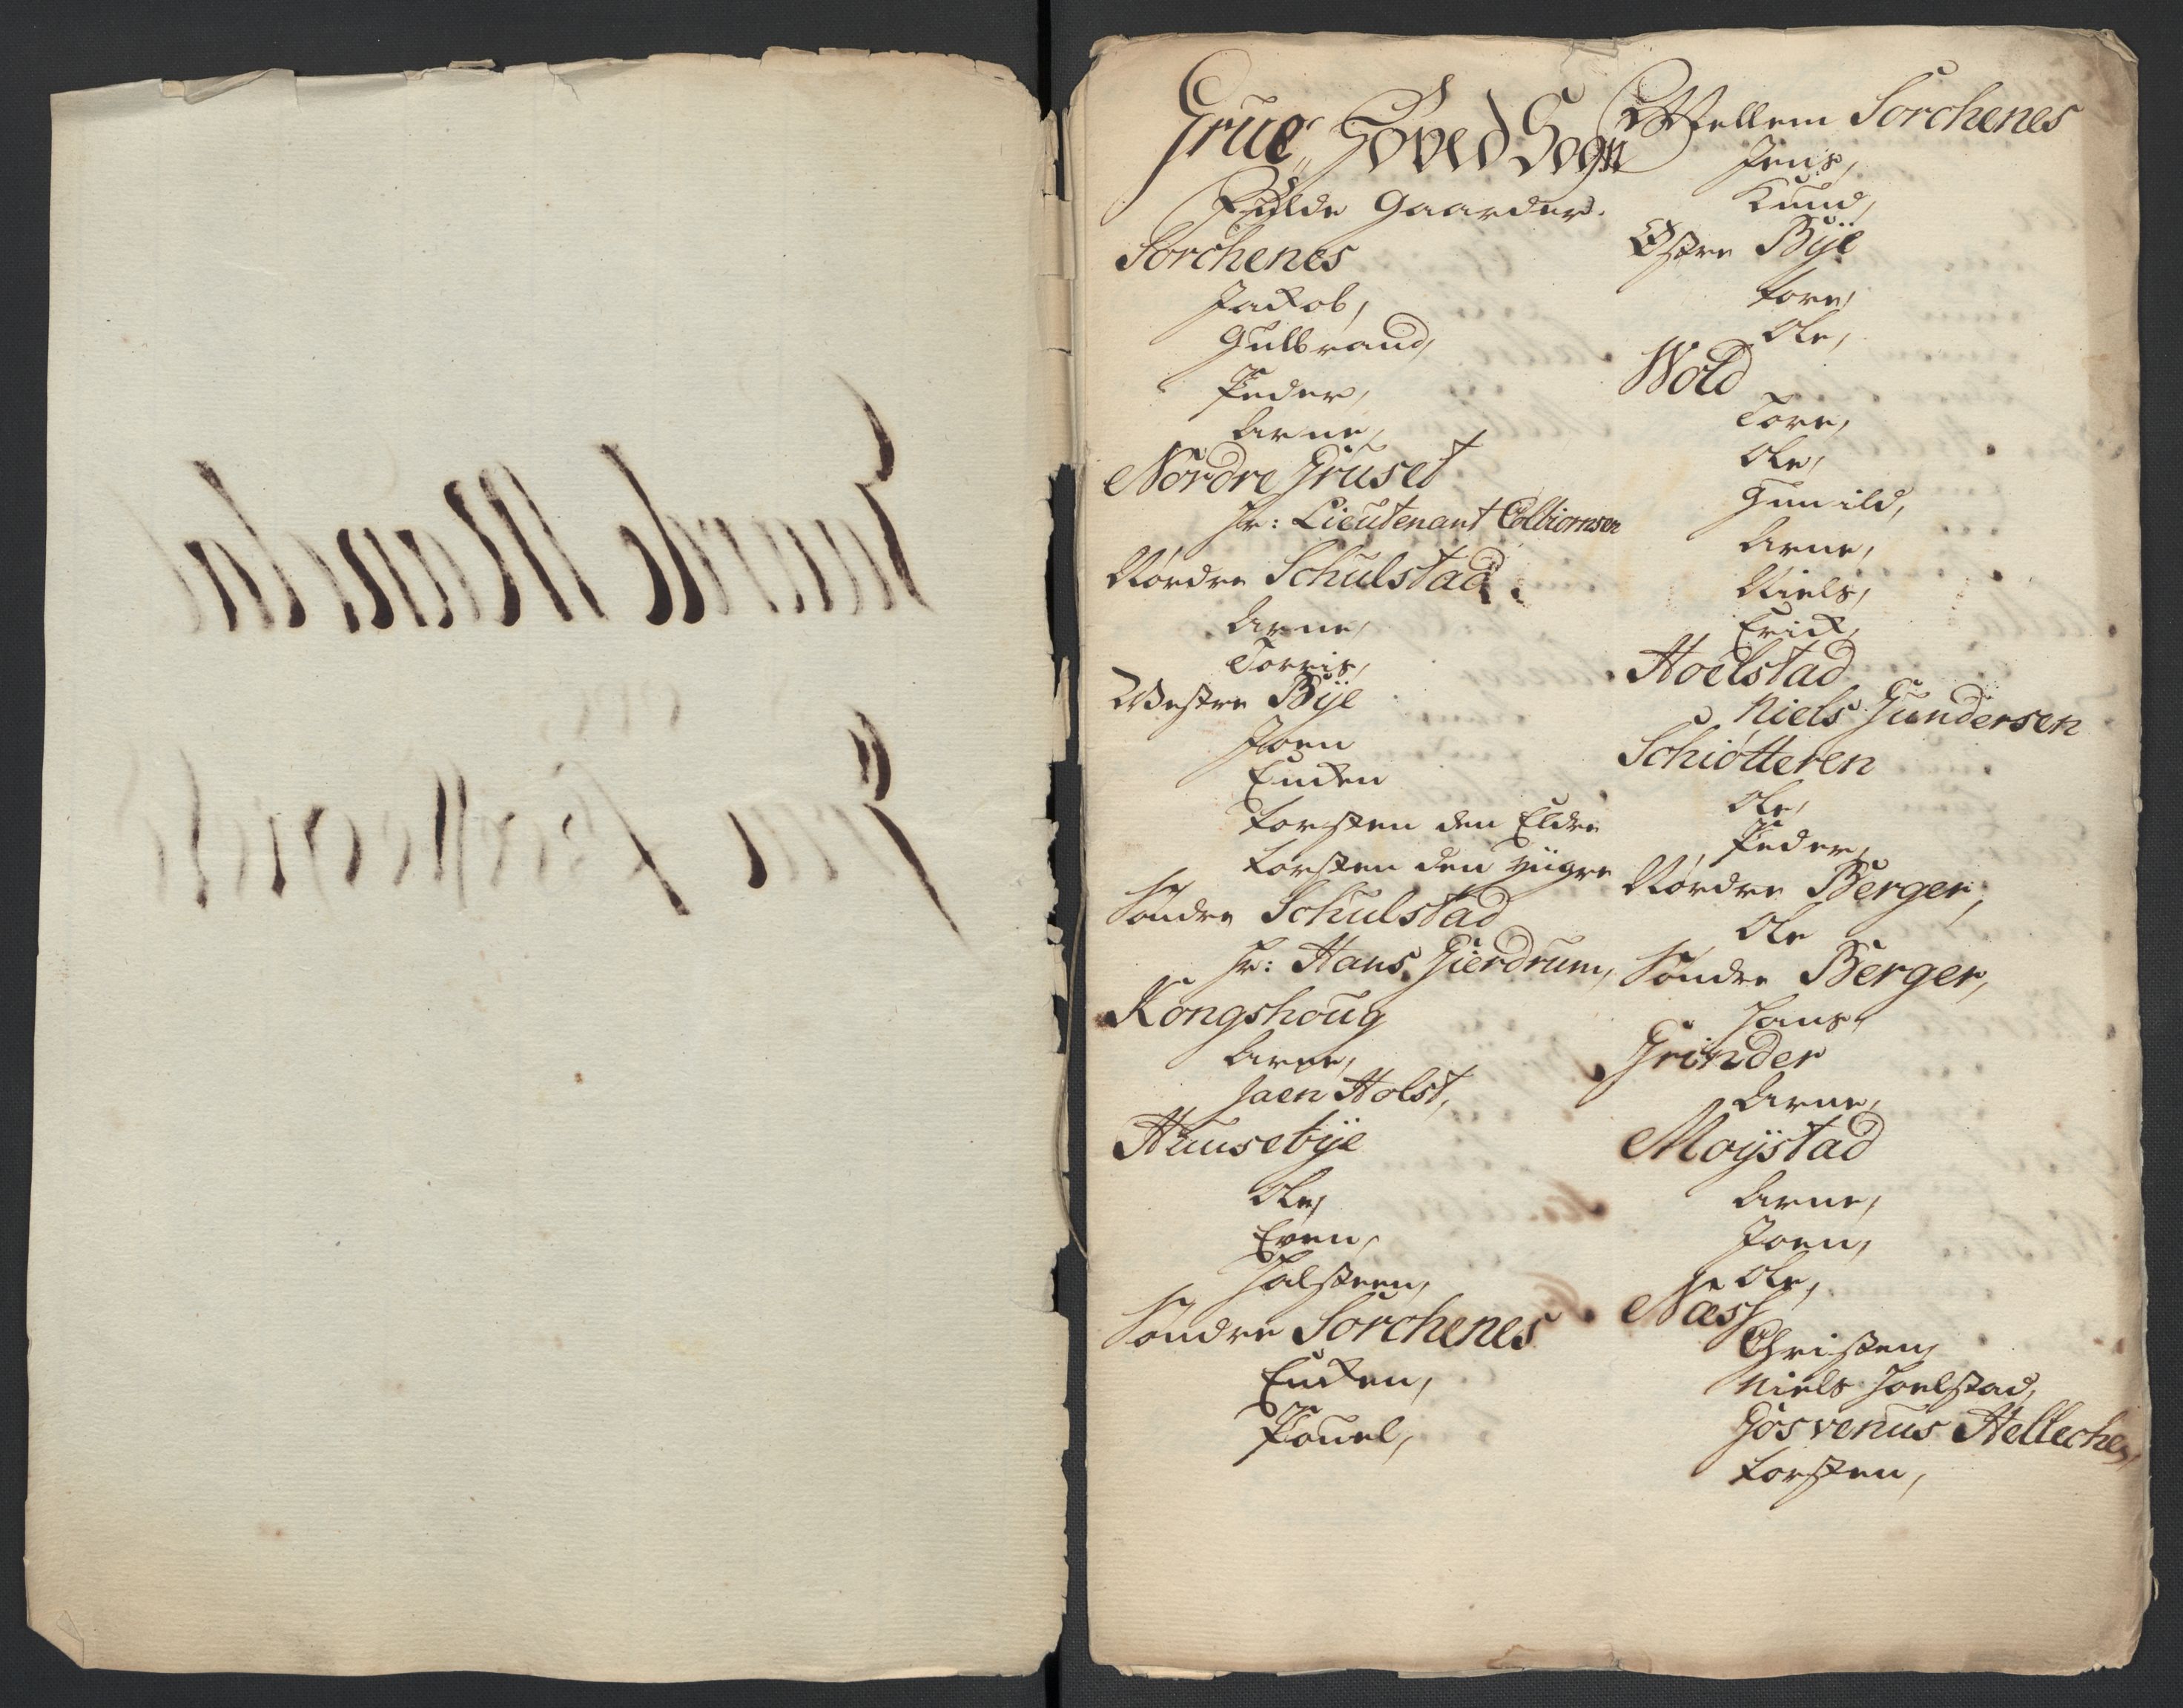 Grue Hoved Sogn
Fulde Gaarder.
Sorchenes
Jackob,
Gulbrand,
Peder,
Arne,
Nordre Gruset
Hr: Lieutenant Colbiornsen
Nordre Schulstad
Arne,
Torris,
Westre Bÿe
Joen
Encken
Torsten den Eldre
Torsten den ÿngre
Søndre Schulstad
Hr: Hans Gierdrum,
Kongshoug
Arne,
Jaen Holst,
Huusebÿe
Ole,
Even,
Halsteen,
Søndre Sorchenes
Encken,
Pouel,
Mellem Sorchenes
Jens,
Knud,
Østre Bÿe
Tore,
Ole,
Wold
Tore,
Ole,
Gunild,
Arne,
Niels,
Erick,
Hoelstad
Niels Gundersen
Schiøtteren
Ole,
Peder,
Nordre Berger,
Ole
Søndre Berger,
Hans,
Grinder
Arne,
Moÿstad
Arne,
Joen,
Ole,
Næss
Christen,
Niels Hoelstad,
Gosvenus Hellechen,
Torsten,